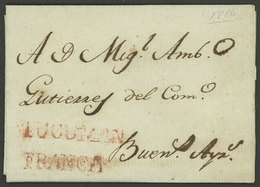 1816
A D Migl. Ambo.
Gutierres del Como.
TUCUMAN
FRANCA
Buens. Ays.